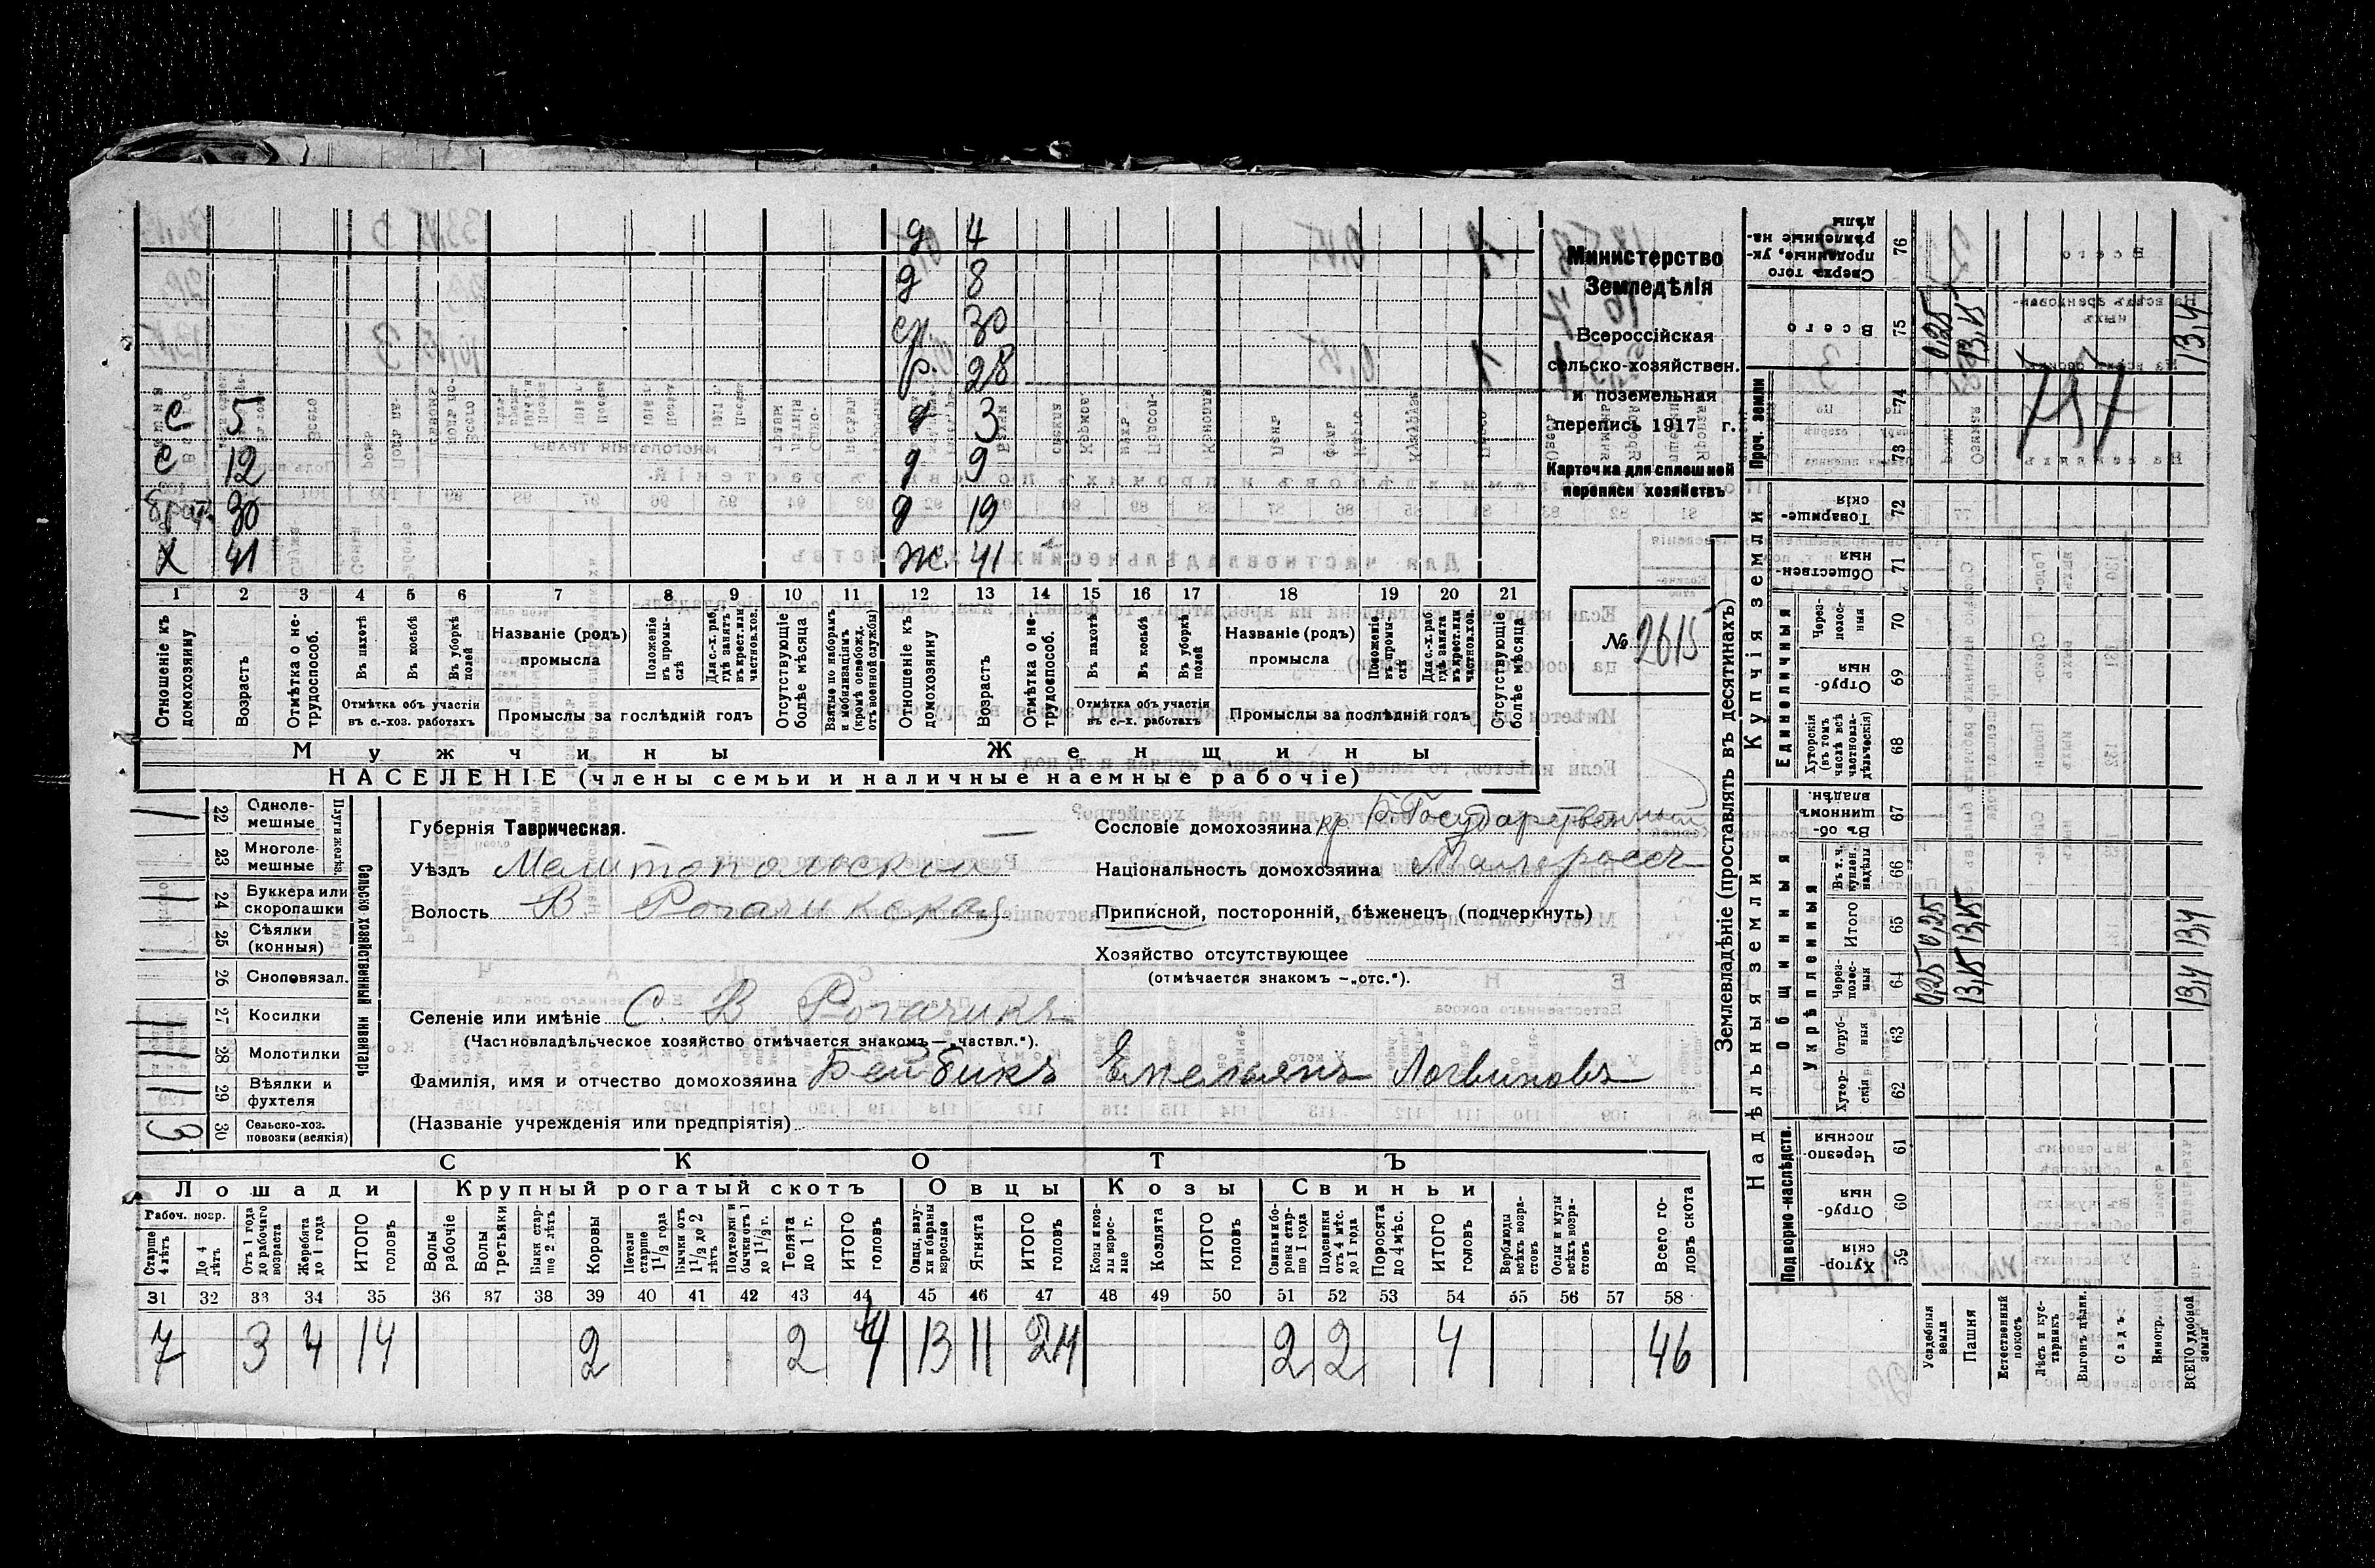 д 4
д 8
ср. 30
р. 28
с 5 д 3
с 12 д 9
брат. 30 д 19
х 41 ж. 41
1 2 3 4 5 6 7 8 9 10 11 12 13 14 15 16 17 18 19 20 21
Отношеніе къ домохозяину
Возрастъ
Отмѣтка о нетрудоспособ.
Въ пахотѣ
Въ косьбѣ
Въ уборкѣ полей
Отмѣтка объ участіи въ с.-хоз. работахъ
Названіе (родъ) промысла
Положеніе въ промыслѣ
Для с.-х. раб. гдѣ занятъ въ крест. или частнов. хоз.
Промыслы за послѣдній годъ
Отсутствующіе болѣе мѣсяца
Взятые по наборамъ и мобилизаціямъ (кромѣ освобожд. отъ военной службы)
Отношеніе къ домохозяину
Возрастъ
Отмѣтка о нетрудоспособ.
Въ пахотѣ
Въ косьбѣ
Въ уборкѣ полей
Отмѣтка объ участіи въ с.-х. работахъ
Названіе (родъ) промысла
Положеніе въ промыслѣ
Для с.-х. раб. гдѣ занята въ крест. или частнов. хоз.
Промыслы за послѣдній годъ
Отсутствующіе болѣе мѣсяца
Мужчины Женщины
НАСЕЛЕНІЕ (члены семьи и наличные наемные рабочіе)
Министерство
Земледѣлія
Всероссійская
сельско-хозяйствен.
и поземельная
перепись 1917 г.
Карточка для сплошной
переписи хозяйствъ
№ 2615
Сельско-хозяйственный инвентарь
Плуги желѣз.
22 Одноле-мешные
23 Многоле-мешные
24 Буккера или скоропашки
25 Сѣялки (конныя)
26 Сноповязал.
27 Косилки
28 Молотилки
29 Вѣялки и фухтеля
3 30 Сельско-хоз. повозки (всякія)
Губернія Таврическая.
Уѣздъ Мелитопольскій
Волость В Рогачикская
Селеніе или имѣніе С. В Рогачикъ
(Частновладѣльческое хозяйство отмѣчается знакомъ — „частвл.“).
Фамилія, имя и отчество домохозяина Бейбикъ Емельянъ Логвиновъ
(Названіе учрежденія или предпріятія)
Сословіе домохозяина кр. б. Государственный
Національность домохозяина Малоросс
Приписной, посторонній, бѣженецъ (подчеркнуть)
Хозяйство отсутствующее
(отмѣчается знакомъ — „отс.“).
СКОТЪ
Лошади Крупный рогатый скотъ Овцы Козы Свиньи
Рабоч. возр.
Старше 4 лѣтъ
До 4 лѣтъ
Отъ 1 года до рабочаго возраста
Жеребята до 1 года
ИТОГО головъ
Волы рабочіе
Волы третьяки
Быки старше 2 лѣтъ
Коровы
Нетели старше 1 1/2 года
Бычки отъ 1 1/2 до 2 лѣтъ
Подтелки и бычки отъ 1 до 1 1/2 г.
Телята до 1 г.
ИТОГО головъ
Овцы, валухи и бараны взрослые
Ягнята
ИТОГО головъ
Козы и козлы взрослые
Козлята
ИТОГО головъ
Свиньи и боровы старше 1 года
Подсвинки отъ 4 мѣс. до 1 года
Поросята до 4 мѣс.
ИТОГО головъ
Верблюды всѣхъ возрастовъ
Ослы и мулы всѣхъ возрастовъ
Всего головъ скота
31 32 33 34 35 36 37 38 39 40 41 42 43 44 45 46 47 48 49 50 51 52 53 54 55 56 57 58
7 3 4 14 2 2 4 13 11 24 2 2 4 46
Землевладѣніе (проставлять въ десятинахъ)
Надѣльныя земли
Купчія земли
Проч. земли
Подворно-наслѣдств.
Общинныя
Укрѣпленныя
Единоличныя
59 Хуторскія
60 Отрубныя
61 Черезполосныя
62 Хуторскія
63 Отрубныя
64 Черезполосныя
65 Итого
66 Въ т. ч. куплен. надѣлы
67 Въ общинномъ владѣн.
68 Хуторскія (въ томъ числѣ всѣ частновладѣльческія)
69 Отрубныя
70 Черезполосныя
71 Общественныя
72 Товарищескія
73
74
75 Всего
76 Сверхъ того проданные, укрѣпленные надѣлы
Усадебныя земли 0,25 0,25 0,25
Пашня 13,15 13,15 13,15
Естественный покосъ
Лѣсъ и кустарникъ
Выгонъ цѣлин.
Садъ
Виногр.
ВСЕГО удобной земли 13,4 13,4 13,4